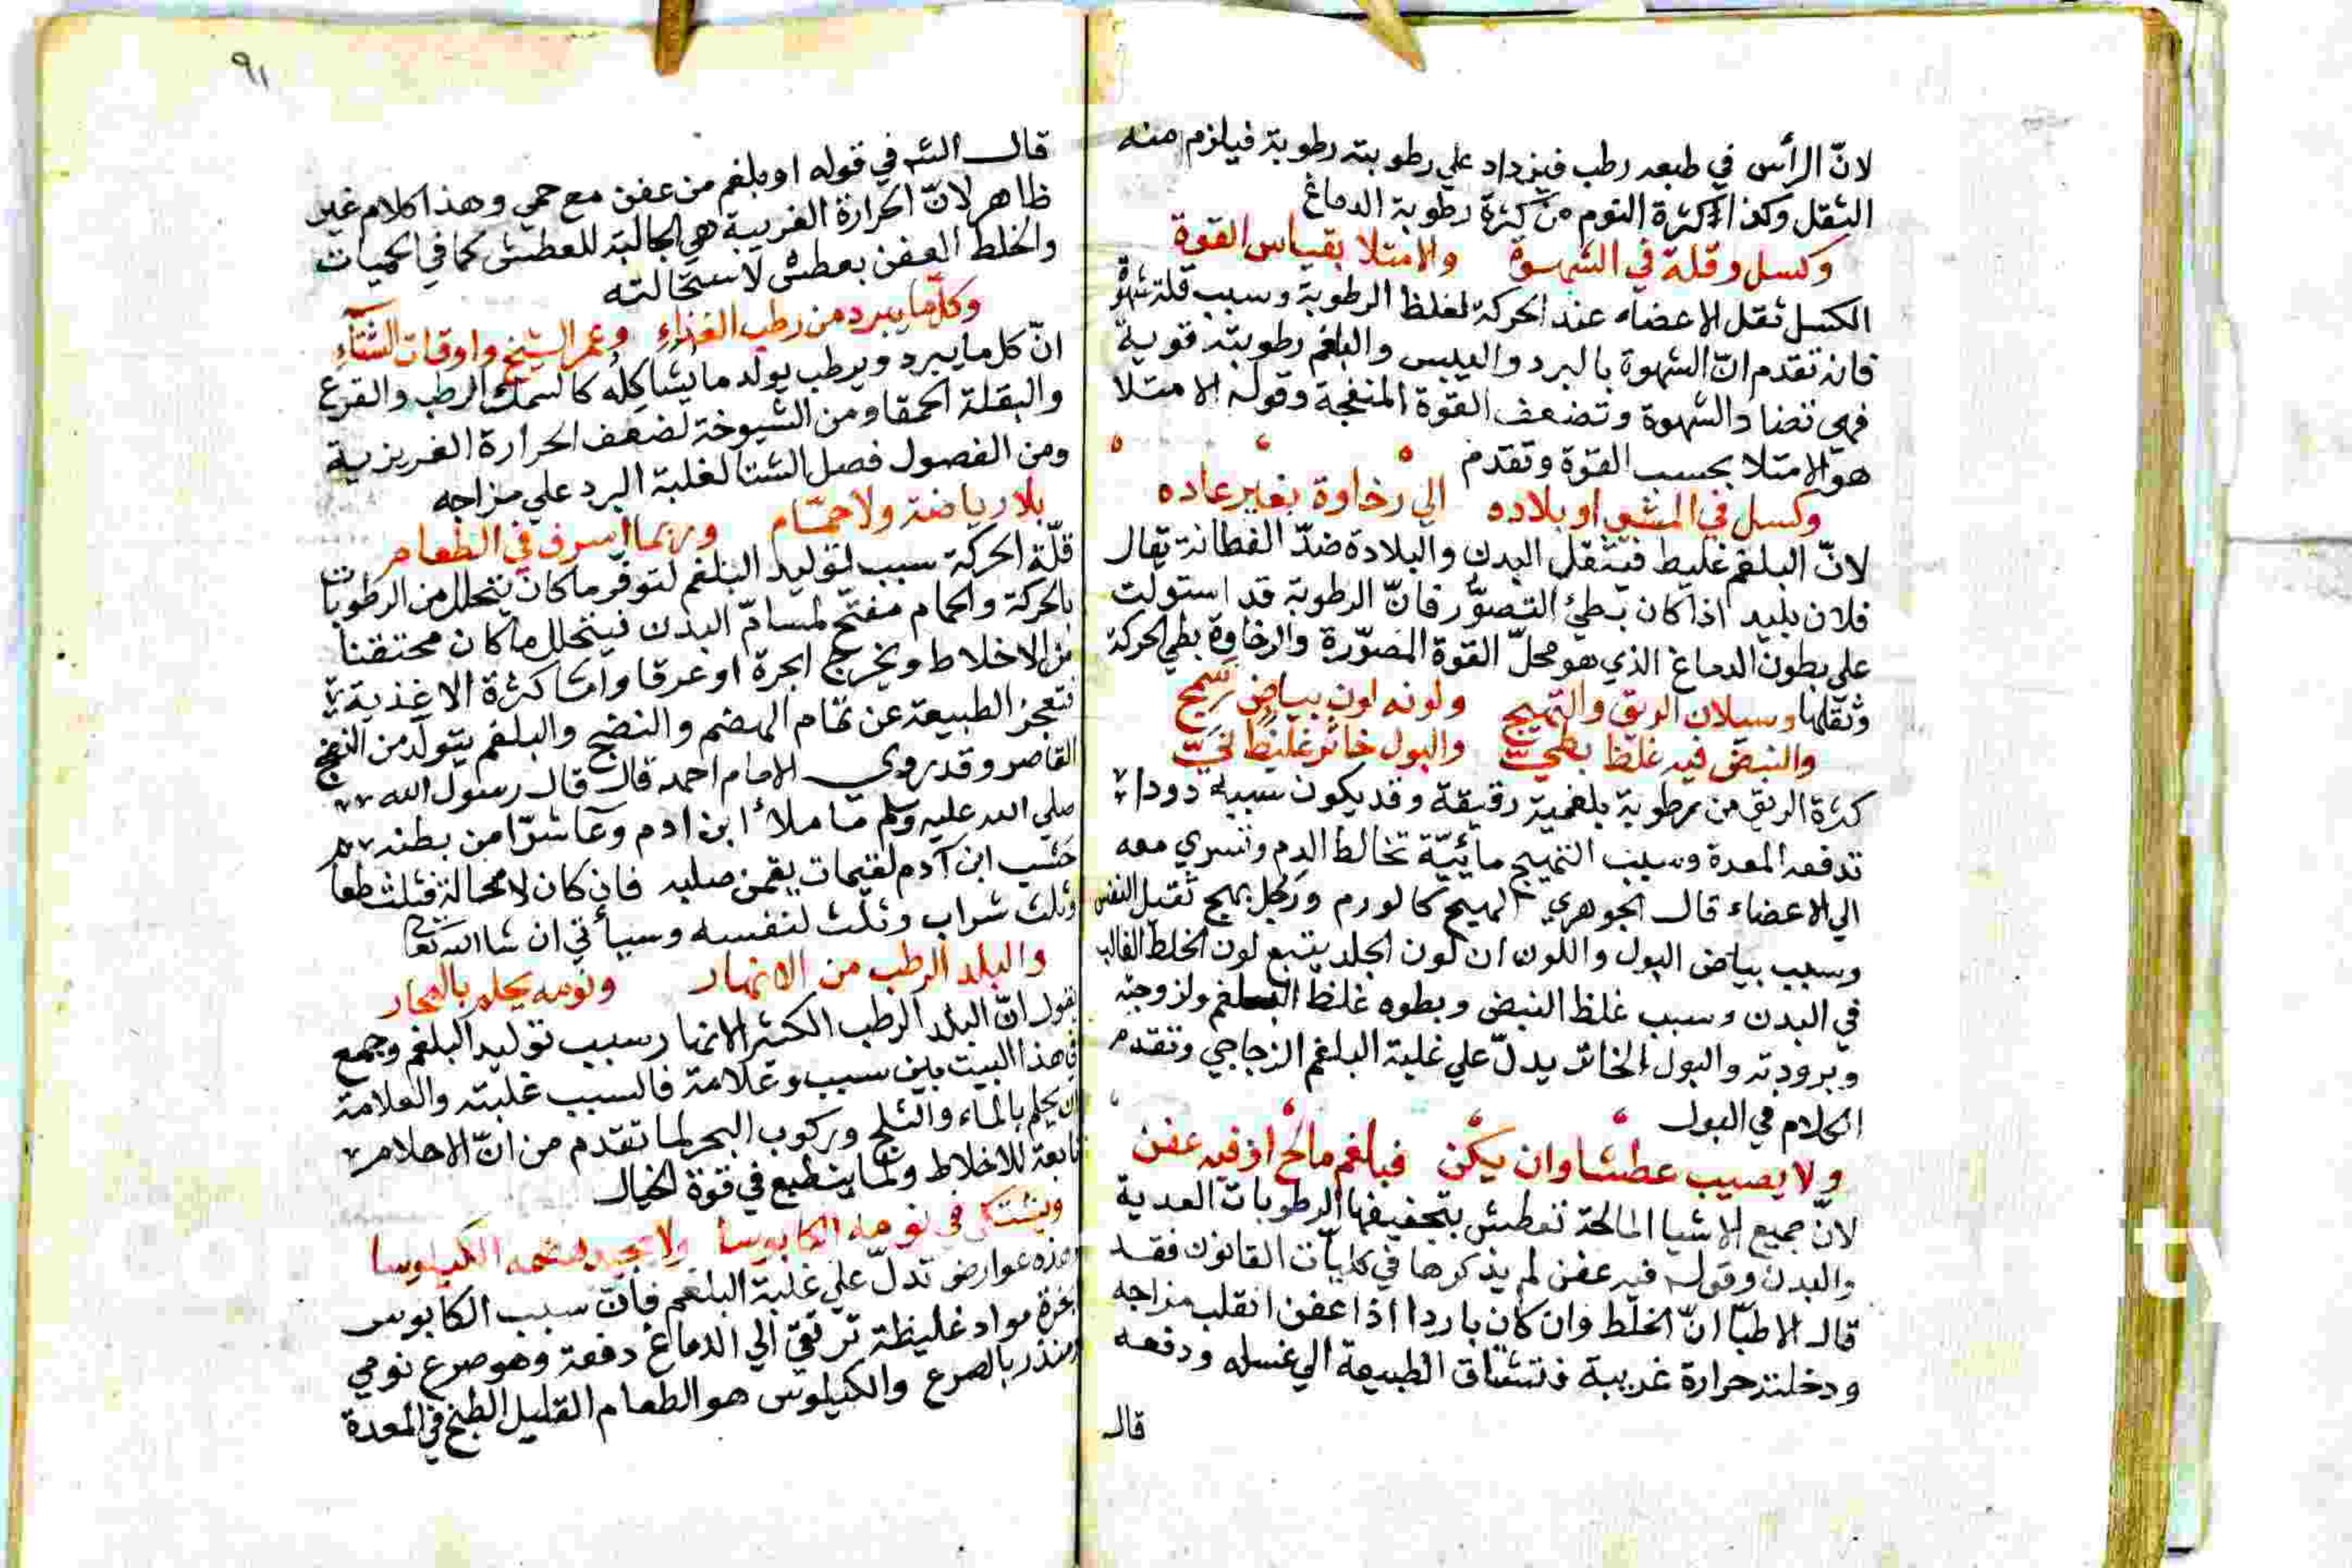 لانّ الرأس في طبعه رطب فيزداد علي رطوبته رطوبة فيلزم منه
الثقل وكذا كثرة النوم من كثرة رطوبة الدماغ
وكسل وقلة في الشهوة والامتلا بقياس القوة
الكسل ثقل الاعضاء عند الحركة لغلظ الرطوبة وسبب قلة شهوة
فانه تقدم انّ الشهوة بالبرد واليبس والبلغم رطوبته قوية
فهي تضاد الشهوة وتضعف القوة المنفجة وقوله الامتلا
هو الامتلا بحسب القوة وتقدم
وكسل في المشي او بلاده الي رخاوة بغير عاده
لانّ البلغم غليط فيثقل البدن والبلادة ضدّ الفطانة يقال
فلان بليد اذا كان بطئ التصوّر فانّ الرطوبة قد استولت
علي بطون الدماغ الذي هو محلّ القوة المصوّرة والرخاوة بطي الحركة
وثقلها وسيلان الريق والتهيج ولونه لون بياض سمج
والنبض فيه غلظ بطيّ والبول خاثر غليظ نيّ
كثرة الريق من رطوبة بلغمية رقيقة وقد يكون سببه دودا
تدفعه المعدة وسبب التهيج مائيّة تخالط الدم وتسري معه
الي الاعضاء قال الجوهري المهيج كالورم ورجل مهيج ثقيل النفس
وسبب بياض البول واللون ان لون الجلد يتبع لون الخلط الغالب
في البدن وسبب غلظ النبض وبطوه غلظ البلغم ولزوجته
وبرودته والبول الخاثر يدلّ علي غلبة البلغم الزجاجي وتقدم
الكلام في البول
ولا يصيب عطشا وان يكن فبلغم مالح او فيه عفن
لانّ جميع الاشيا المالحة تعطش بتجفيفها الرطوبات العدية
والبدن وقوله فيه عفن لم يذكرها في كليّات القانون فقد
قال الاطبّا انّ الخلط وان كان باردا اذا عفن انقلب مزاجه
ودخلته حرارة غريبة فتشتاق الطبيعة الي غسله ودفعه
قال
٩١
قال الش في قوله او بلغم من عفن مع حمي وهذا كلام غير
ظاهر لانّ الحرارة الغريبة هي الجالبة للعطش كما في الحميات
والخلط العفن يعطش لاستحالته
وكلّما يبرد من رطب الغذاء وعمر الشيخ واوقات الشتاء
انّ كل ما يبرد ويرطب يولد ما يشاكله كالسمك الرطب والقرع
والبقلة الحمقا ومن الشيوخة لضعف الحرارة الغريزية
ومن الفصول فصل الشتا لغلبة البرد علي مزاجه
بلا رياضة ولا حمّام وربما اسرف في الطعام
قلّة الحركة سبب لتوليد البلغم لتوفر ما كان يتحلل من الرطوبات
بالحركة والحمام مفتّح لمسامّ البدن فيتحلل ما كان محتقنا
من الاخلاط ويخرج ابخرة او عرقا وامّا كثرة الاغذية
فتعجز الطبيعة عن تمام الهضم والنضج والبلغم يتولّد من النضج
القاصر وقد روي الامام احمد قال قال رسول الله
صلي الله عليه وسلم ما ملأ ابن ادم وعآ شرّا من بطنه
حسب ابن آدم لقيمات يقمن صلبه فان كان لا محالة فثلث طعا
وثلث شراب وثلث لنفسه وسيأتي ان شا الله تعا
والبلد الرطب من الانهار ونومه يحلم بالبحار
يقول انّ البلد الرطب الكثير الانهار سبب توليد البلغم وجمع
في هذا البيت بين سبب وعلامة فالسبب غلبته والعلامة
ان يحلم بالماء والثلج وركوب البحر لما تقدم من انّ الاحلام
تابعة للاخلاط ولما ينطبع في قوة الخيال
ويشتكي في نومه الكابوسا ولا يجيد هضمه الكيلوسا
هذه عوارض تدلّ علي غلبة البلغم فانّ سبب الكابوس
ابخرة مواد غليظة ترتقي الي الدماغ دفعة وهو صرع نومي
ومنذر بالصرع والكيلوس هو الطعام القليل الطبخ في المعدة